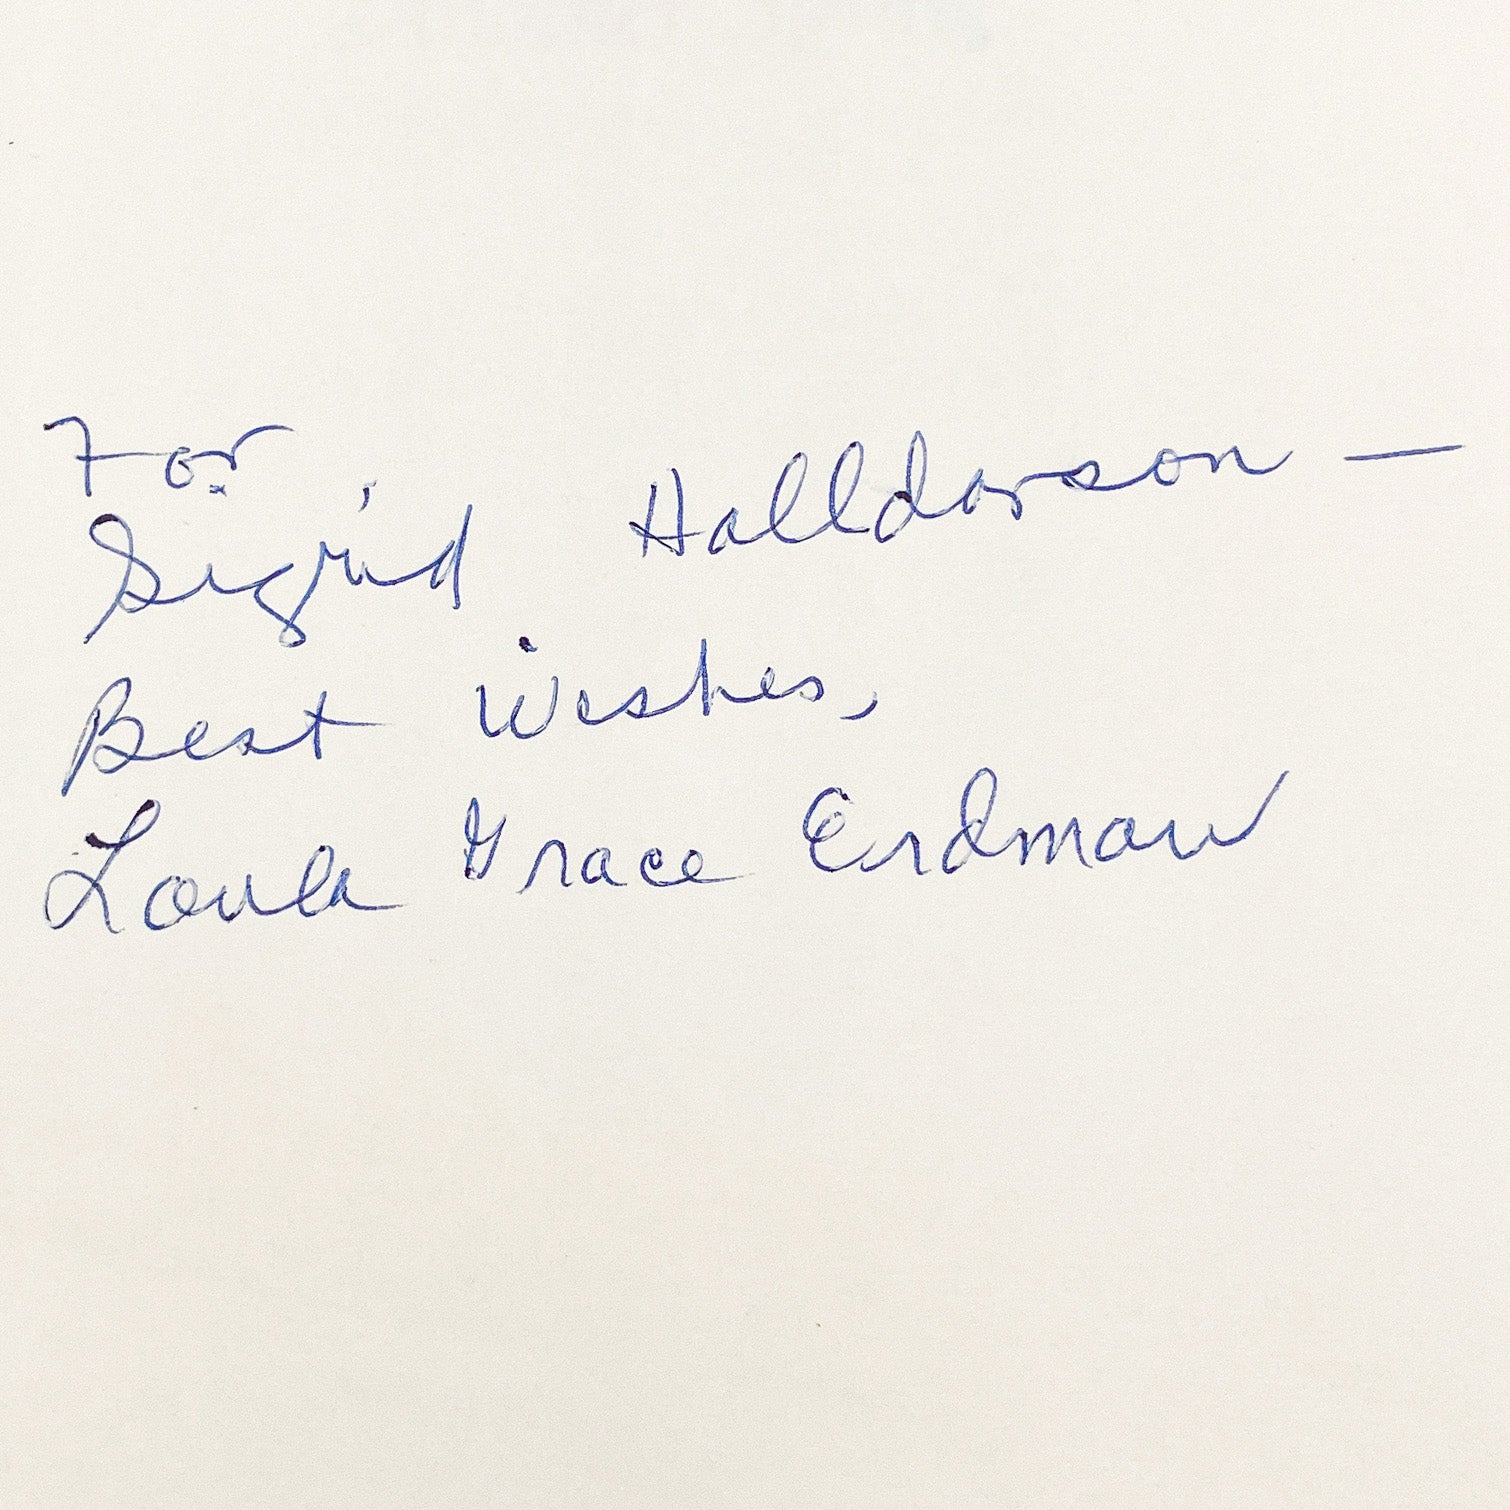 For
Sigrid Halldorson —
Best Wishes,
Loula Grace Erdman